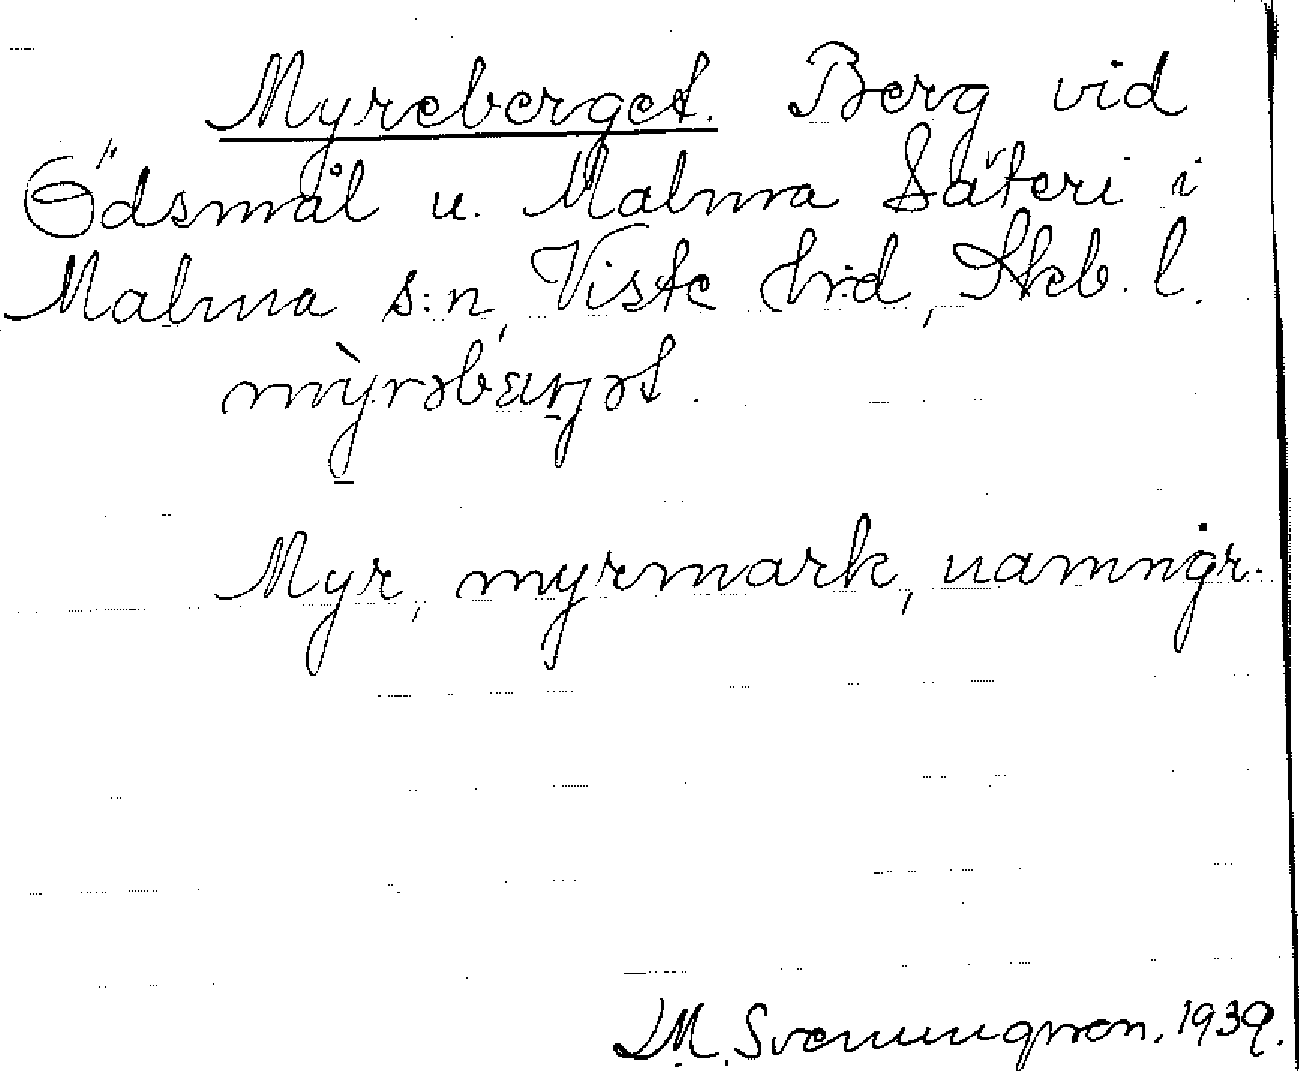 Myreberget. Berg vid
Ödsmål u. Malma Säteri i
Malma s:n, Viste hrd, Skb. l.
mỳrəbærjət.
Myr, myrmark, namngr.
M. Svenungsson. 1939.